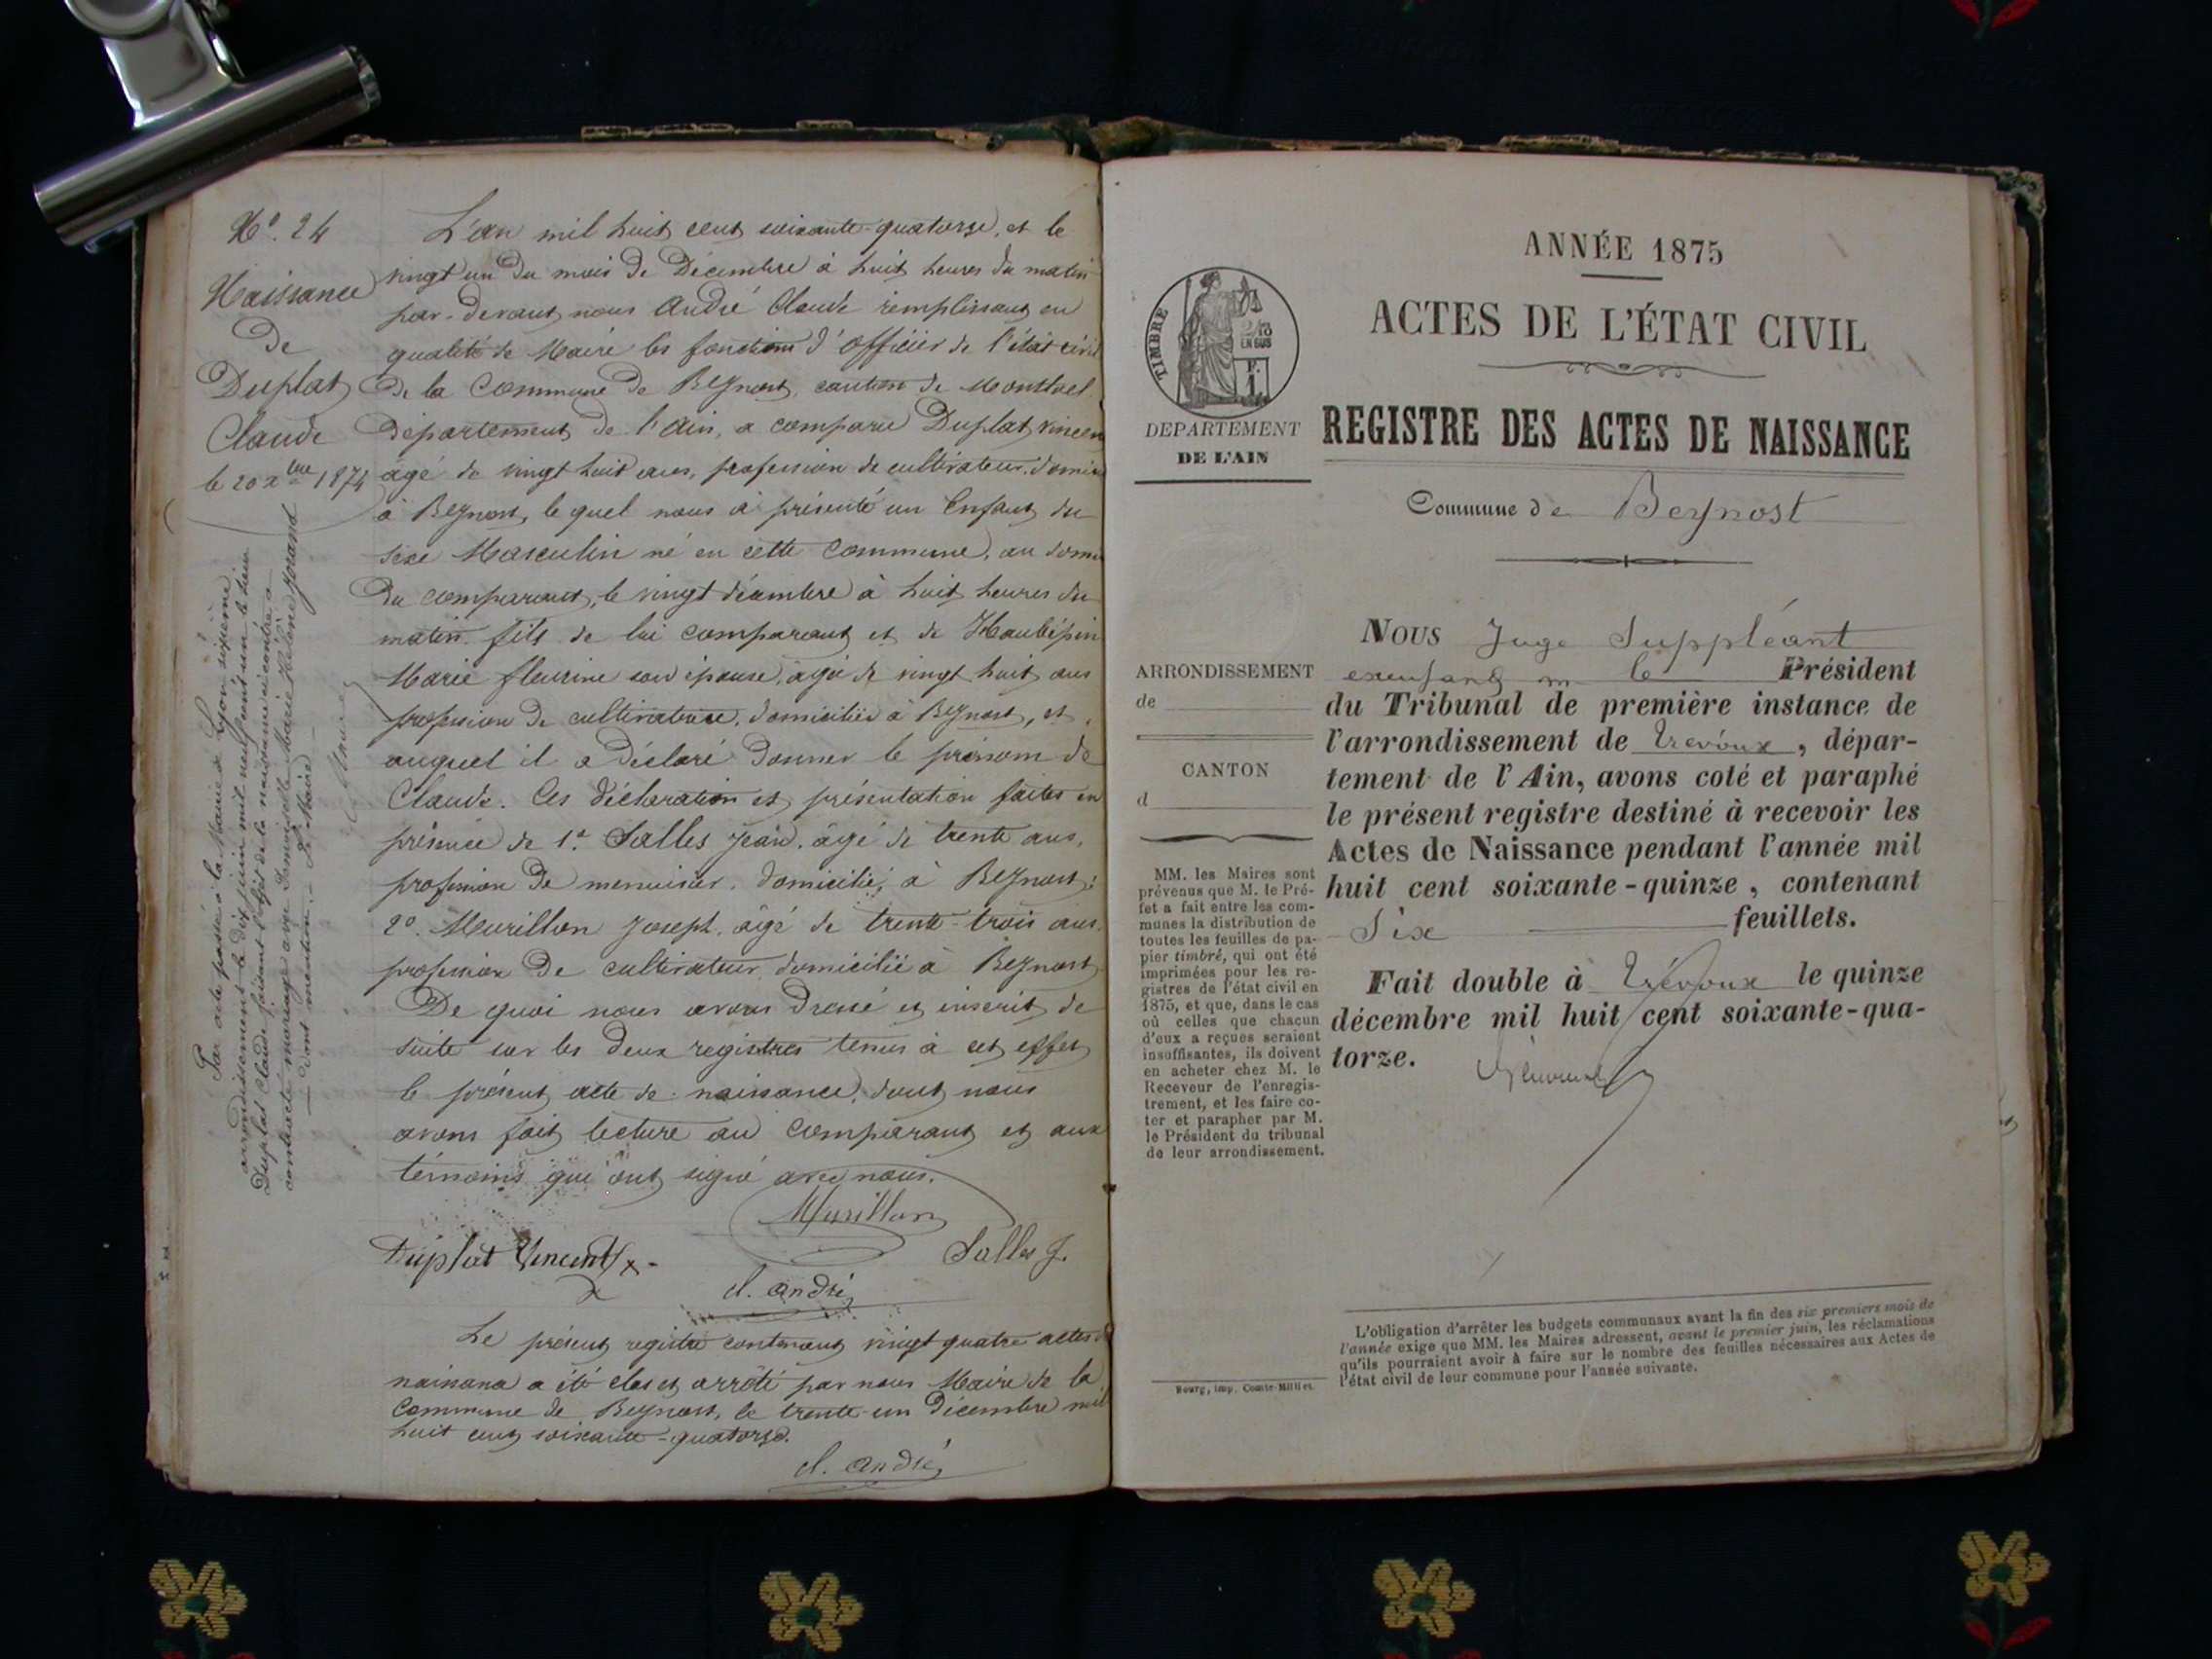 N.º 24
Naissance
de
Duplat
Claude
le 20 Xbre 1874
L'an mil huit cent soixante-quatorze, et le
vingt un du mois de Décembre à huit heures du matin
par-devant nous André Claude remplissant en
qualité de Maire les fonctions d'officier de l'état civil
de la Commune de Beynost, canton de Montluel
département de l'Ain, a comparu Duplat Vincen
agé de vingt huit ans, profession de cultivateur, domici
à Beynost, le quel nous à présenté un Enfant du
sexe Masculin né en cette Commune, au domi
du comparant, le vingt décembre à huit heures du
matin. fils de lui comparant et de Haubépin
Marie fleurine son épouse, agée de vingt huit ans
profession de cultivatrice, domiciliée à Beynost, et
auquel il a déclaré donner le prénom de
Claude. Ces déclaration et présentation faites en
présence de 1º Salles Jean, âgé de trente ans,
profession de menuisier, domicilié, à Beynost;
2º. Murillon Joseph, âgé de trente-trois ans,
profession de cultivateur domicilié à Beynost
De quoi nous avons dressé et inscrit de
suite sur les deux registres tenus à cet effet
le présent acte de naissance, dont nous
avons fait lecture au Comparant et aux
témoins qui ont signé avec nous.
Murillon
Duplat Vincent
Salles J.
cl. andré
Le présent registre contenant vingt quatre actes d
naissance a été clos et arrêté par nous Maire de la
Commune de Beynost, le trente-un Décembre mil
huit cent soixante-quatorze.
cl. andré
Par acte passé à la Mairie de Lyon sixième
arrondissement le dix juin mil neuf cent un le sieur
Duplat Claude faisant l'objet de la naissance ci contre a
contracté mariage avec Demoiselle Marie Hélène Jorand
dont mention. Le Maire
ANNÉE 1875
ACTES DE L'ÉTAT CIVIL
REGISTRE DES ACTES DE NAISSANCE
Commune de Beynost
TIMBRE
2/10
EN SUS
F.
1.
DEPARTEMENT
DE L'AIN
ARRONDISSEMENT
de
CANTON
d
MM. les Maires sont
prévenus que M. le Pré-
fet a fait entre les com-
munes la distribution de
toutes les feuilles de pa-
pier timbré, qui ont été
imprimées pour les re-
gistres de l'état civil en
1875, et que, dans le cas
où celles que chacun
d'eux a reçues seraient
insuffisantes, ils doivent
en acheter chez M. le
Receveur de l'enregis-
trement, et les faire co-
ter et parapher par M.
le Président du tribunal
de leur arrondissement.
Bourg, imp. Comte-Milliet
NOUS Juge Suppléant
le Président
du Tribunal de première instance de
l'arrondissement de Trévoux, dépar-
tement de l'Ain, avons coté et paraphé
le présent registre destiné à recevoir les
Actes de Naissance pendant l'année mil
huit cent soixante-quinze, contenant
Six feuillets.
Fait double à Trévoux le quinze
décembre mil huit cent soixante-qua-
torze.
L'obligation d'arrêter les budgets communaux avant la fin des six premiers mois de
l'année exige que MM. les Maires adressent, avant le premier juin, les réclamations
qu'ils pourraient avoir à faire sur le nombre des feuilles nécessaires aux Actes de
l'état civil de leur commune pour l'année suivante.